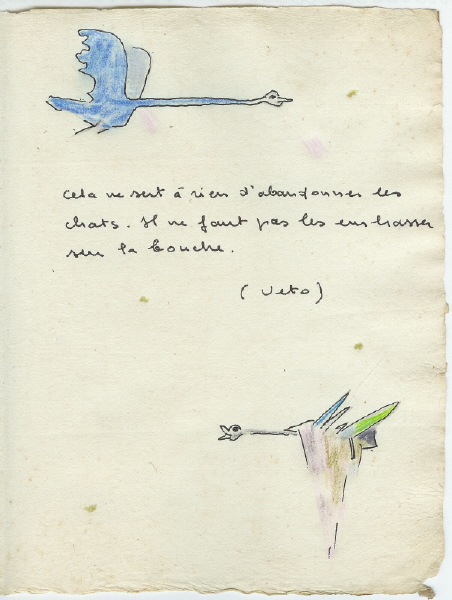 Cela ne sert à rien d'abandonner les
chats. Il ne faut pas les embrasser
sur la bouche.
( Veto )